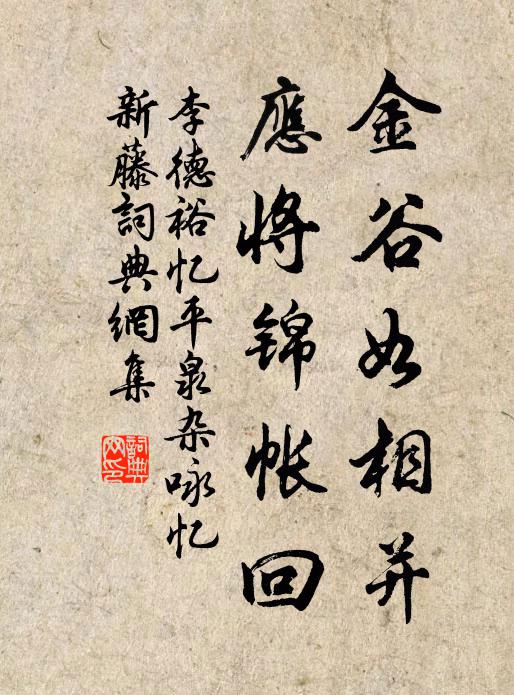 金谷如相并
應將锦帐回
李德裕忆平泉杂咏忆
新藤詞典網集
詞典网印